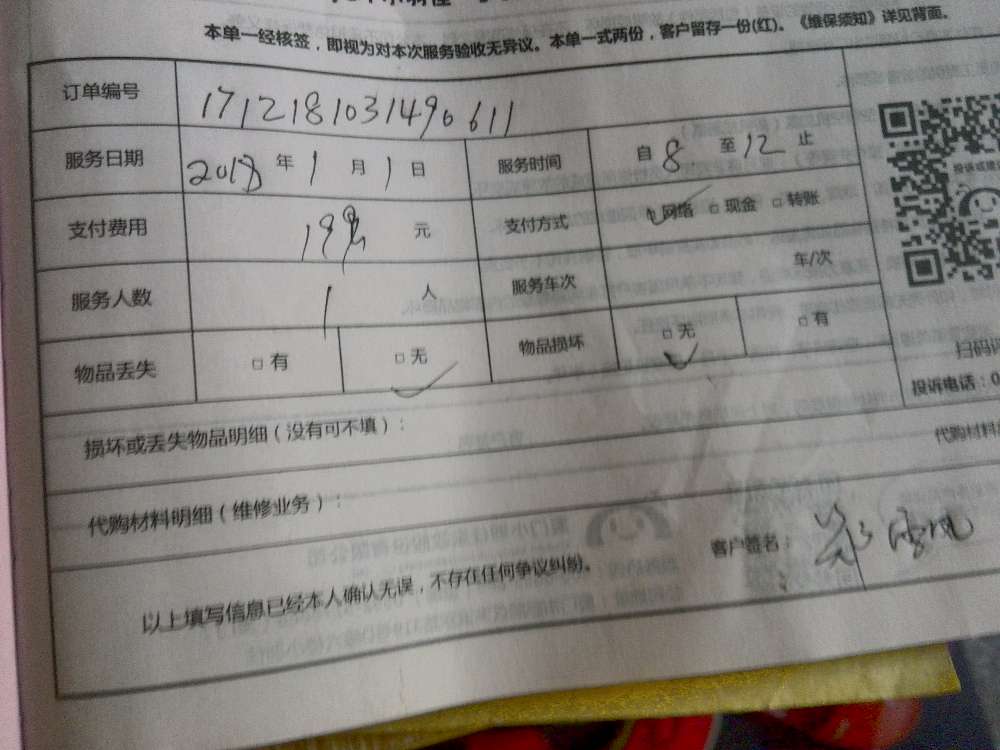 本单一经核签，即视为对本次服务验收无异议。本单一式两份，客户留存一份(红)。《维保须知》详见背面。
订单编号 1712181031490611
服务日期 2018 年 1 月 1 日 服务时间 自 8 至 12 止
支付费用 元 支付方式 □网络 □现金 □转账
服务人数 1 人 服务车次 车/次
物品丢失 □有 □无 物品损坏 □无 □有
扫码
投诉电话：0
损坏或丢失物品明细（没有可不填）：
代购材料
代购材料明细（维修业务）：
客户签名：
以上填写信息已经本人确认无误，不存在任何争议纠纷。